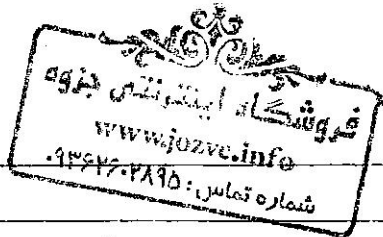 فروشگاه اینترنتی جزوه
www.jozve.info
شماره تماس: ۰۹۳۶۲۶۰۲۸۹۵